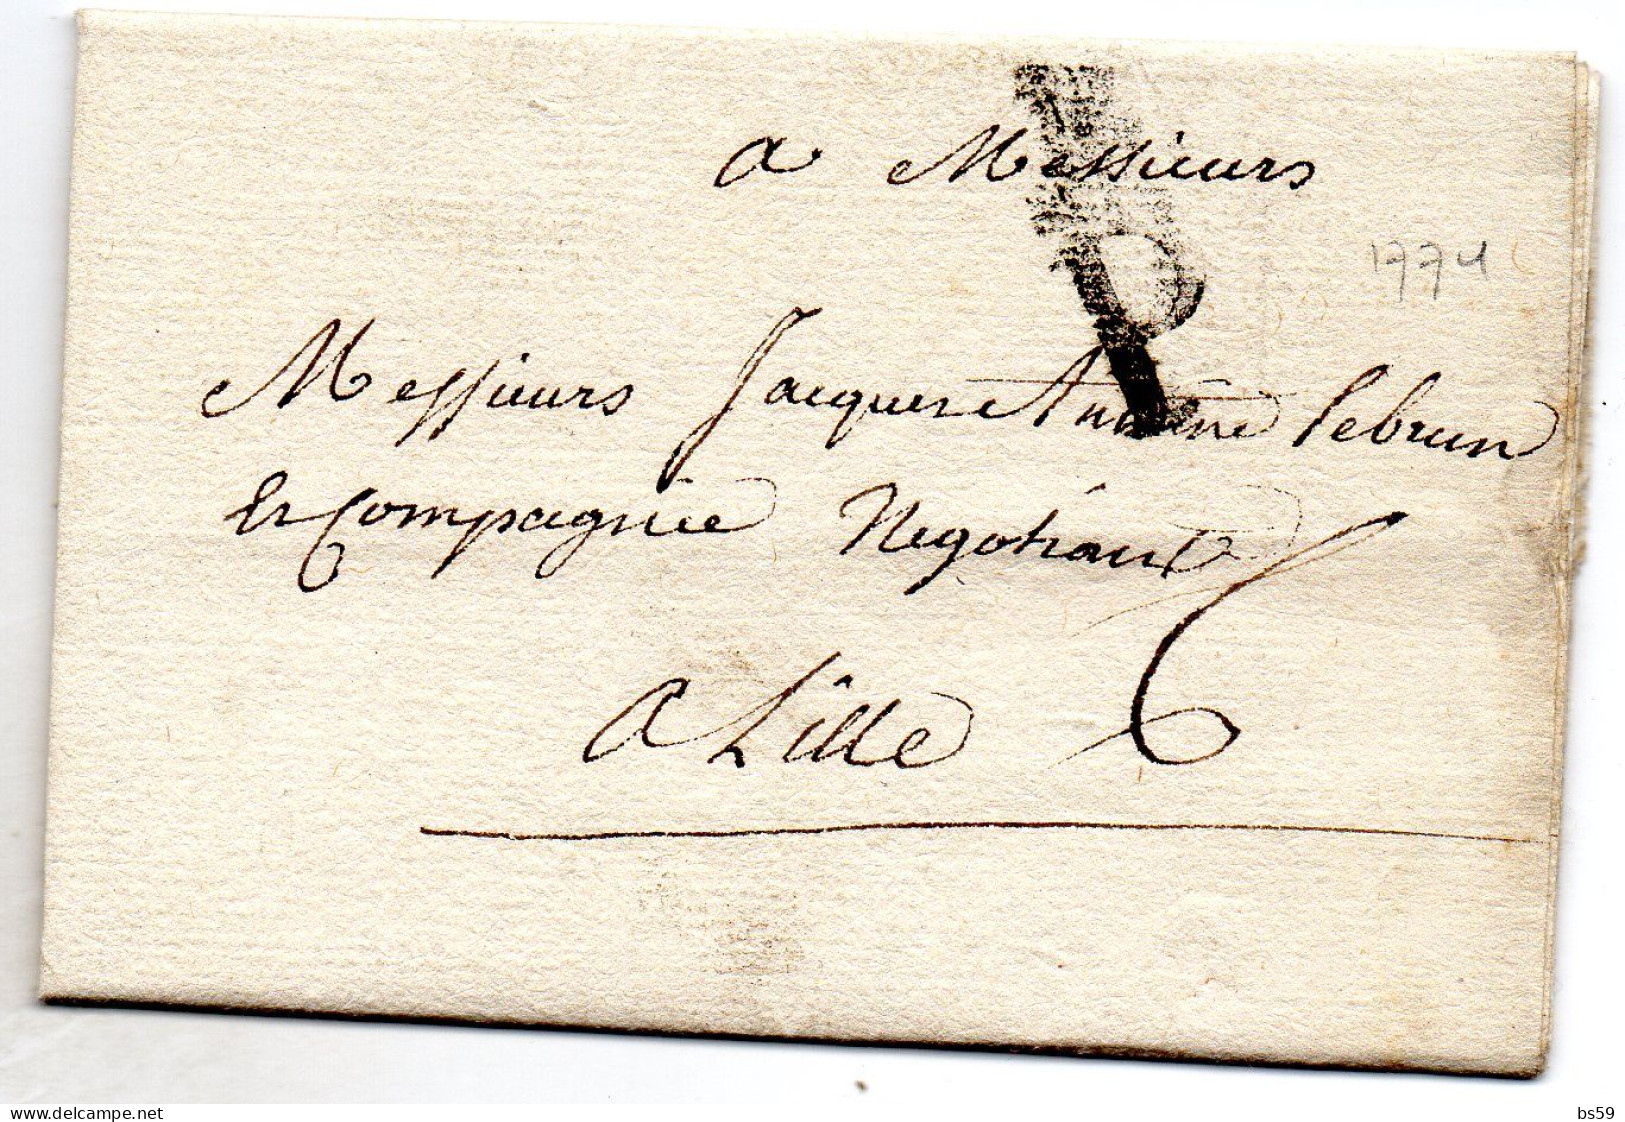 a Messieurs
1774
Messieurs Jacques Antoine lebrun
Et Compagnie Negotiant
6
A Lille
delcampe.net
bs59